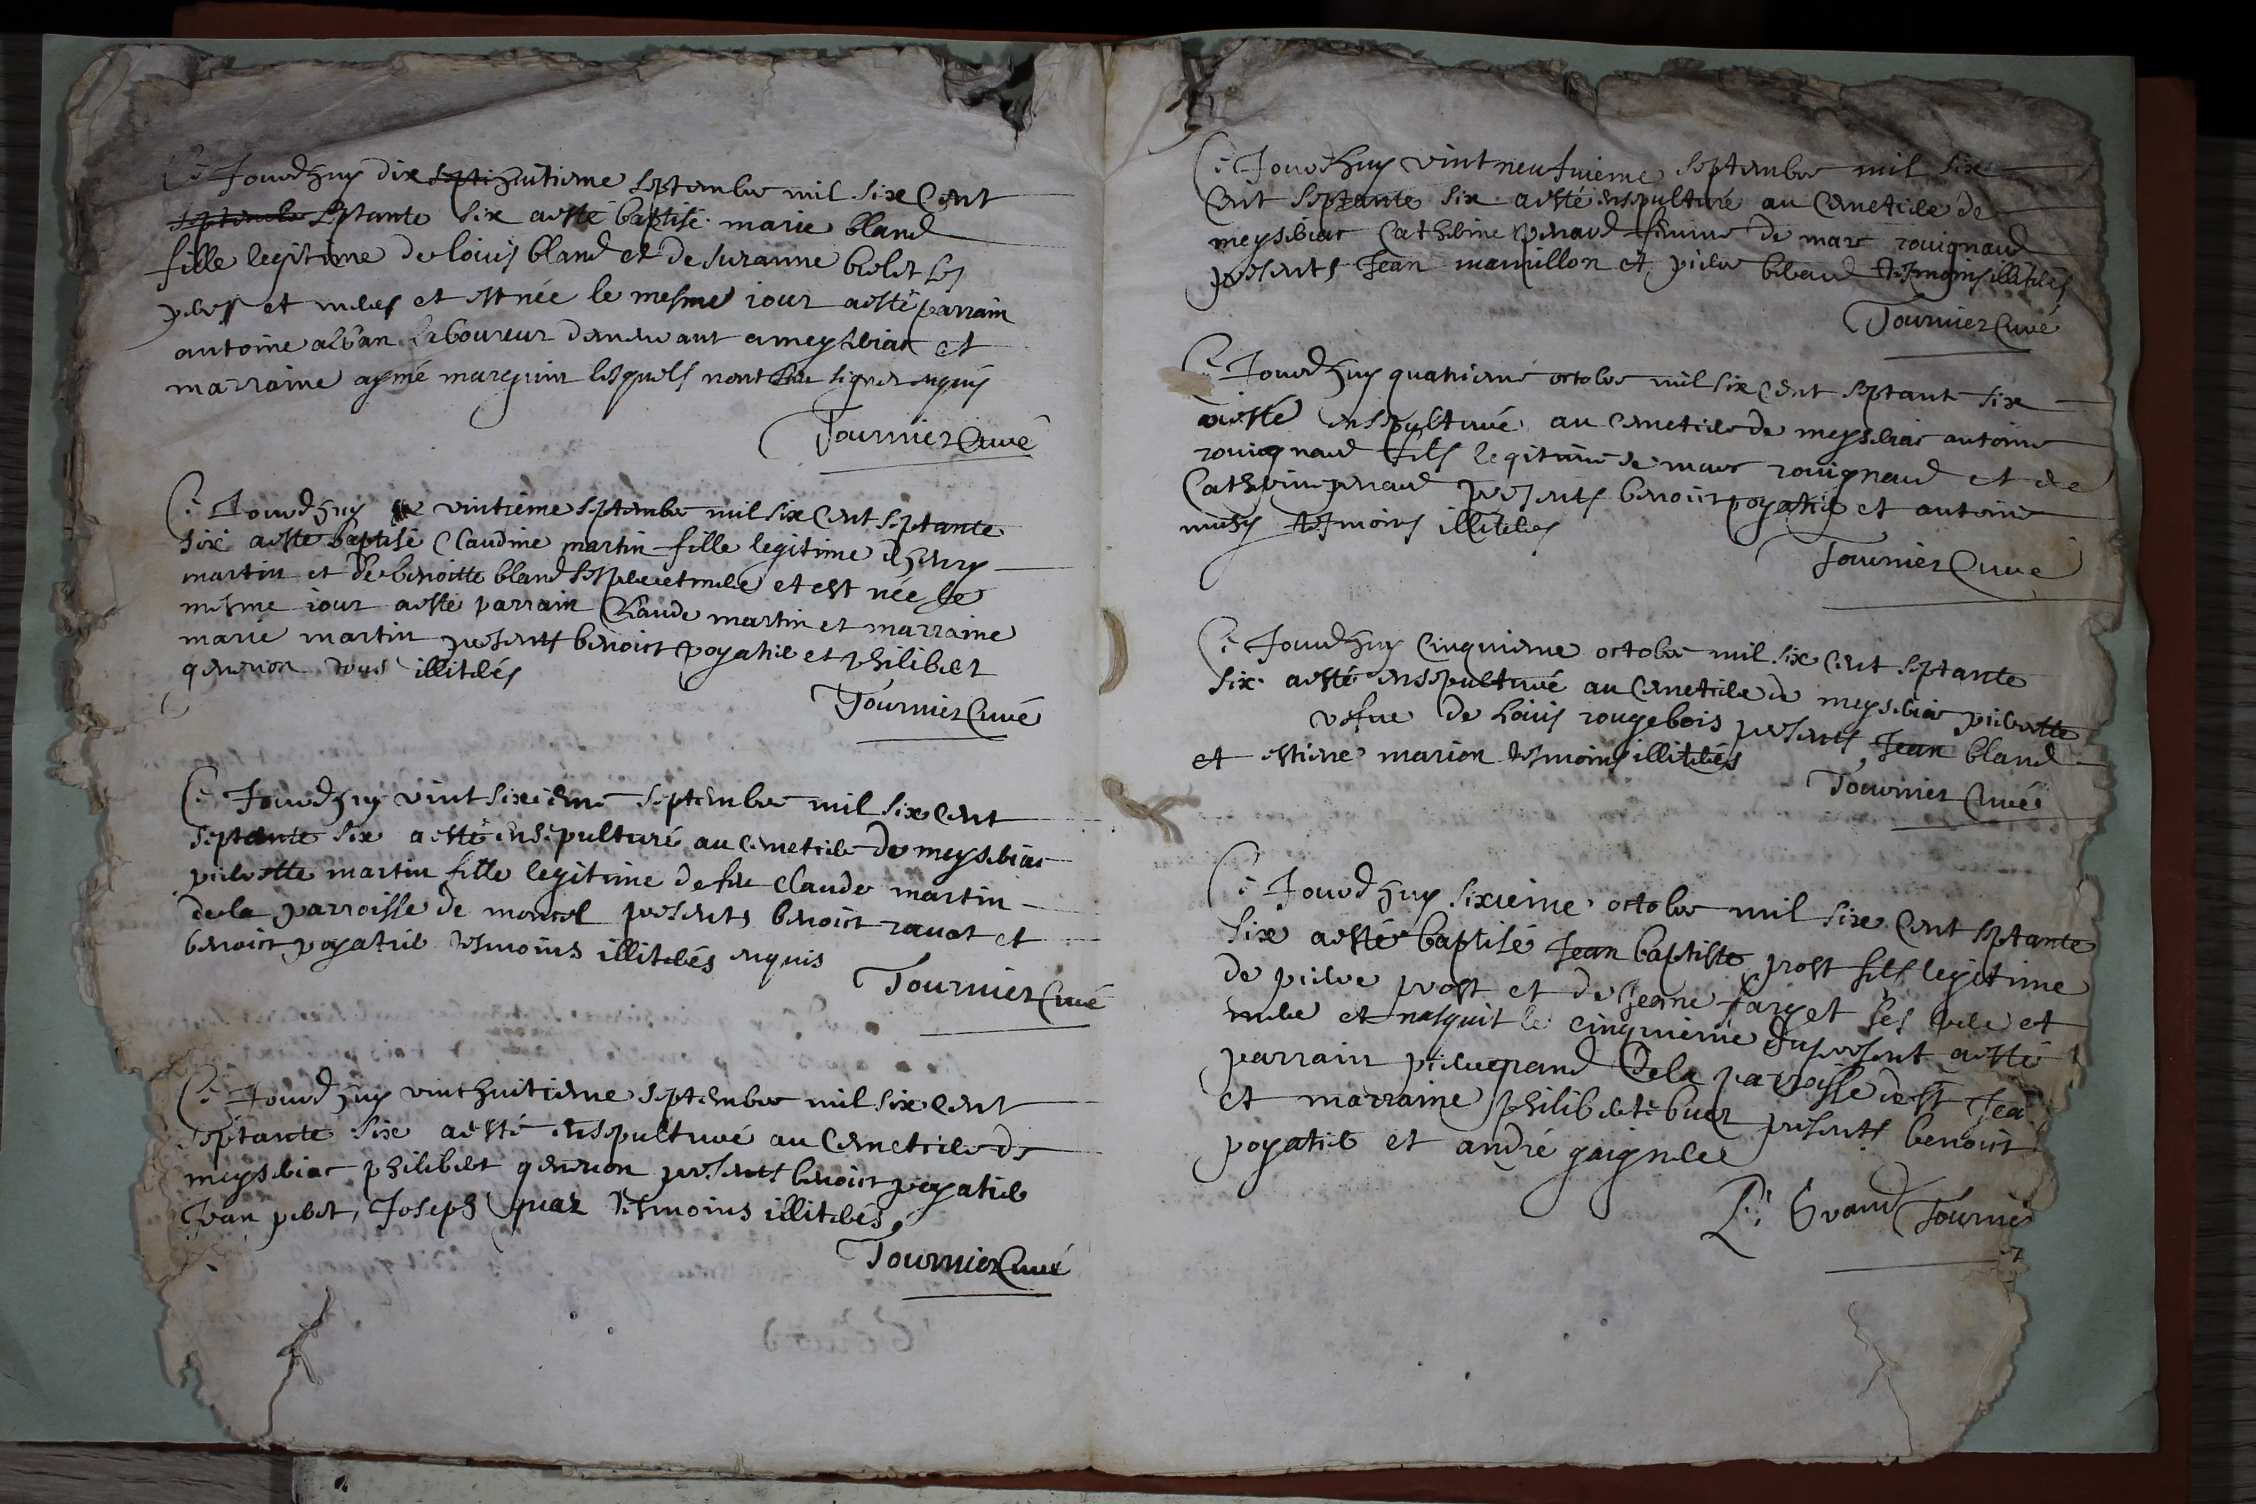 Ce Jourdhuy dix septi huitieme septembre mil six cent
septembre septante six a esté baptisé marie bland
fille legitime de louis bland et de suzanne
peres et meres et est née le mesme iour a esté parrain
antoine alban laboureur demeurant a meyseriac et
marraine aymé marguin lesquels nont sceu signer enquis
Tournier Curé
Ce Jourdhuy vintieme septembre mil six cent septante
six a esté baptisé Claudine martin fille legitime dhenry
martin et de benoitte bland ses pere et mere et est née le
mesme iour a esté parrain Claude martin et marraine
marie martin presents benoict poyatie et philibert
quenion tous illiterés
Tournier Curé
Ce Jourdhuy vint sixieme septembre mil six cent
septante six a esté ensepulturé au cemetiere de meyseriac
pierrette martin fille legitime de feu Claude martin
de la parroisse de moncel presents benoict ravat et
benoict poyatie tesmoins illiterés enquis
Tournier Curé
Ce Jourdhuy vint huitieme septembre mil six cent
septante six a esté ensepulturé au Cemetiere de
meyseriac philibert quenion presents benoict poyatie
Jean Joseph quaz tesmoins illiterés
Tournier Curé
Ce Jourdhuy vint neufvieme septembre mil six
Cent septante six a esté ensepulturé au Cemetiere de
meyseriac Catherine penaud femme de marc rouignaud
presents Jean mamillon et piere beraud tesmoins illiterés
Tournier Curé
Ce Jourdhuy quatrieme octobre mil six Cent septant six
a esté ensepulturé au Cemetiere de meyseriac antoine
rouignaud fils legitime de marc rouignaud et de
Catherine penaud presents benoict poyatie et antoine
tesmoins illiterés
Tournier Curé
Ce Jourdhuy Cinquieme octobre mil six Cent septante
six a esté ensepulturé au Cemetiere de meyseriac pierrette
vefve de Louis rougebois presents Jean bland
et estiene marion tesmoins illiterés
Tournier Curé
Ce Jourdhuy sixieme octobre mil six Cent septante
six a esté baptisé Jean baptiste prost fils legitime
de pierre prost et de Jeanne farget ses pere et
mere et nasquit le cinquieme du present a esté
parrain pierre grand de la parroisse de st Jea
et marraine philiberte buer presents benoict
poyatie et andré gaignere
P. Grand Tournie